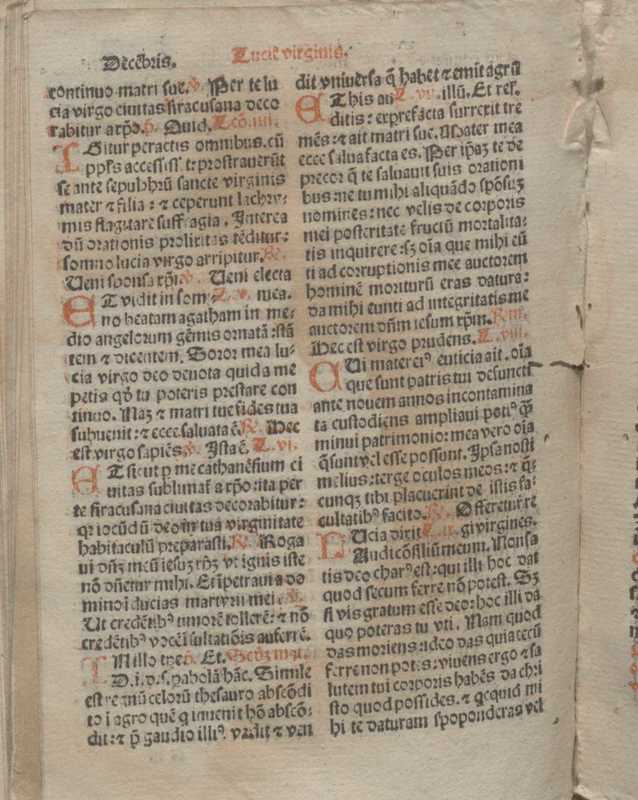 Decēbris. Lucie virginis.
continuo matri sue. ℣. Per te lu
cia virgo ciuitas siracusana deco
rabitur a xp̄o. ℣. Quid. Lcō. iiii.
IGitur peractis omnibus. cū
se ante sepulchrū sancte virginis
mater ⁊ filia: ⁊ ceperunt lachry-
mis flagitare suffragia. Interea
dū orationis prolixitas tēditur:
somno lucia virgo arripitur. ℟.
Ueni sponsa xp̄i. ℣. Ueni electa
ET vidit in som- L. v. mea.
no beatam agatham in me-
dio angelorum gēmis ornatā: stā
tem ⁊ dicentem. Soror mea lu-
cia virgo deo deuota quid a me
petis qd̄ tu poteris prestare con
tinuo. Naꝫ ⁊ matri tue fides tua
subuenit: ⁊ ecce saluata ē. ℟. Hec
est virgo sapiēs. ℣. Ista ē. L. vi.
ET sicut ꝑ me cathanēsium ci
uitas sublimat̄ a xp̄o: ita per
te siracusana ciuitas decorabitur:
qꝛ iocūdū deo in tua virginitate
habitaculū preparasti. ℟. Roga
ui dn̄ꝫ meū iesuꝫ xp̄ꝫ vt ignis iste
nō dn̄etur mihi. Et īpetraui a do
mino īducias martyrii mei. ℣.
Ut credētibꝰ timorē tollerē: ⁊ nō
credētibꝰ vocē īsultationis auferrē.
IN illo tp̄e. ℣. Et. Scd̄ꝫ mat.
D. i. d. s. pabolā hāc. Simile
est regnū celorū thesauro abscōdi
to ī agro quē q inuenit hō abscō-
dit: ⁊ p̄ gaudio illiꝰ. vadit ⁊ ven
dit vniuersa q̄ habet ⁊ emit agrū
EThis au- L. vii. illū. Et res.
ditis: exprefacta surrexit tre
mēs: ⁊ ait matri sue. Mater mea
ecce salua facta es. Per ip̄aꝫ te de
precor q̄ te saluauit suis orationi
bus: ne tu mihi aliquādo spōsuꝫ
nomines: nec velis de corporis
mei posteritate fructū mortalita-
tis inquirere: sꝫ oīa que mihi eū
ti ad corruptionis mee auctorem
hominē moriturū eras datura:
da mihi eunti ad integritatis me
auctorem dn̄m iesum xp̄m. ℟.
Hec est virgo prudens. L. viii.
CUi mater eiꝰ euticia ait. oīa
que sunt patris tui defuncti
ante nouem annos incontamina
ta custodiens ampliaui potiꝰ qȝ̄
minui patrimonio: mea vero oīa
q̄ sunt vel esse possunt. Ipsa nosti
melius: terge oculos meos: ⁊ q̄-
cunqꝫ tibi placuerint de istis fa-
cultatibꝰ facito. ℟. Offeretur re
LUcia dixit L. ix. gi virgines.
Audi cōsiliū meum. Non sa
tis deo charꝰ est: qui illi hoc dat
quod secum ferre nō potest. Sꝫ
si vis gratum esse deo: hoc illi da
quo poteras tu vti. Nam quod
das moriens: ideo das quia tecū
ferre non potes: viuens ergo ⁊ sa
lutem tui corporis habēs da chri
sto quod possides. ⁊ qcquid mi
hi te daturam spoponderas vel